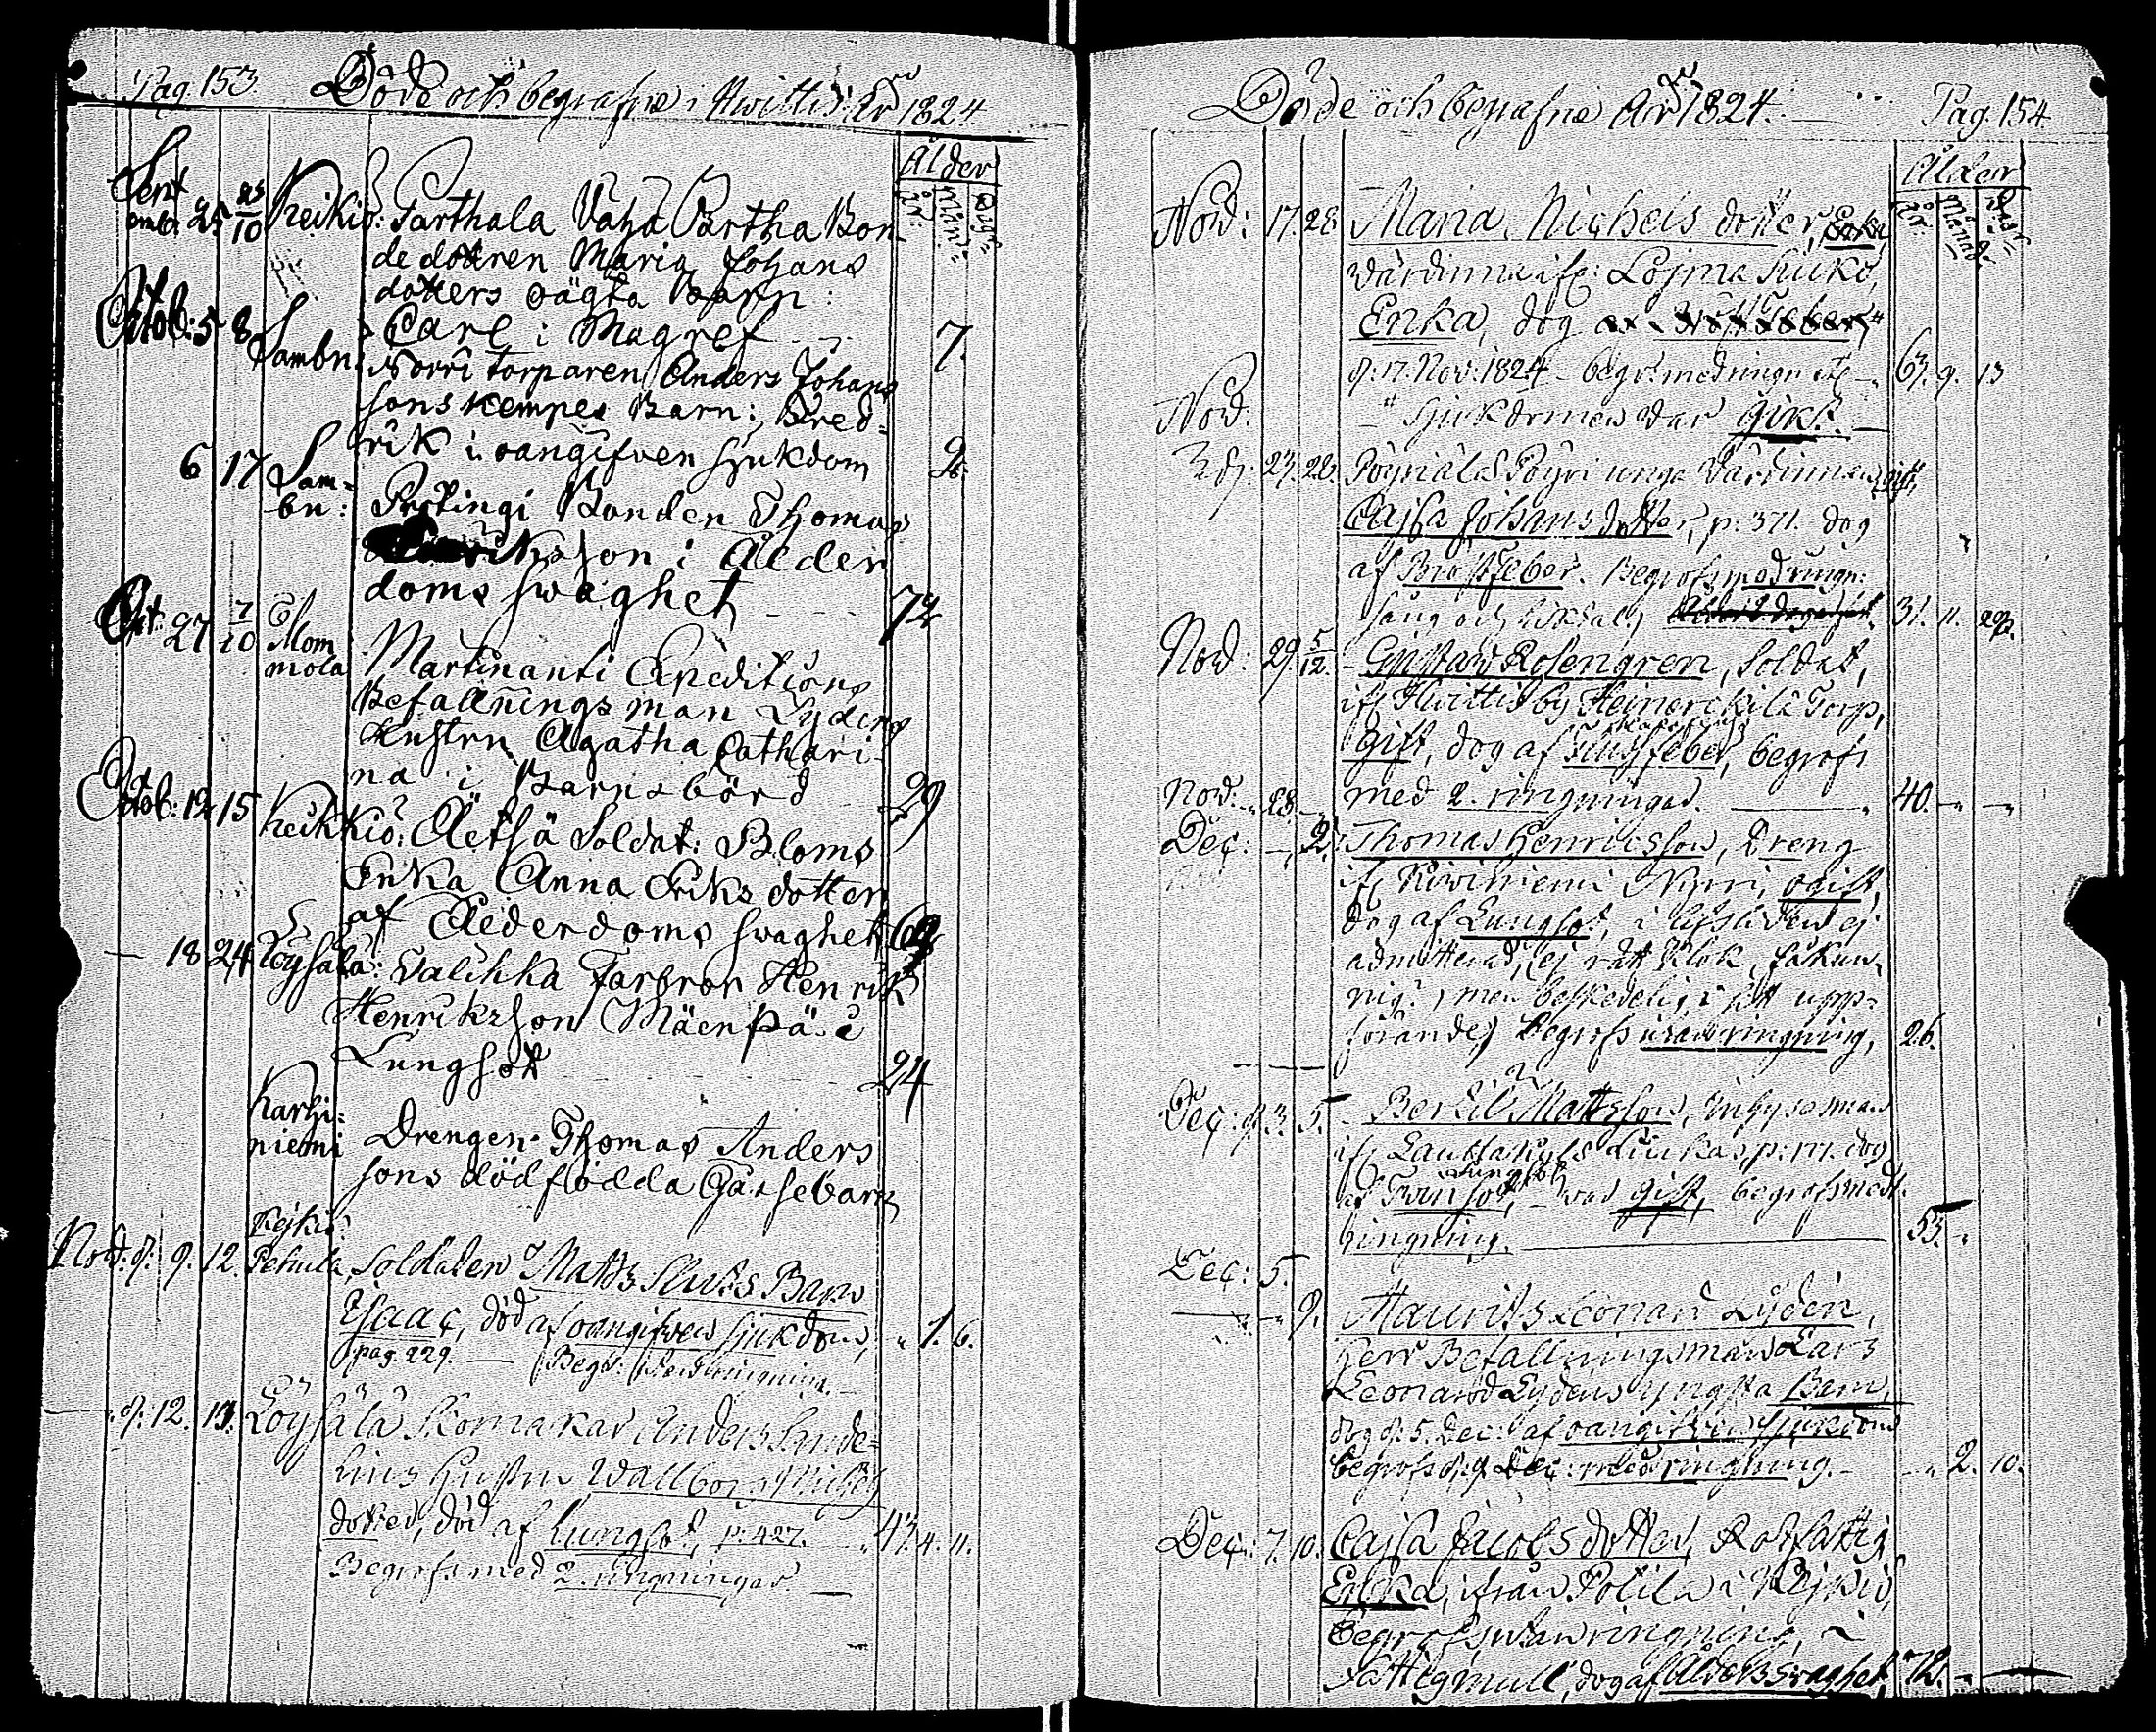 Pag. 153. Döde och begrafne i Hwittis År 1824
Ålder
år: Mån: Dag:
Sept
emb. 25 23/10 Keikiö: Parthala Vaha Pertha Bon-
de dottren Maria Johans
dotters oägta Barn:
Octob: 5 8 Carl i Magref 7.
Sambu Norri torparen Anders Johans
sons Kempes Barn: Fred-
rik i oangifven sjukdom 2.
6 17 Sam-
bu: Prekingi Bonden Thomas
riksson i Ålder
doms swaghet 72
Oct 27 7/10 Mom
mola Martinanti Expeditions
Befallnings man Lydens
Hustru Agatha Cathari-
na i Barnsbörd 29
Octob: 12 15 Keikkiö: Äetsä Soldat: Bloms
Enka Anna Eriks dotter
af Ålderdoms swaghet 69
18 24 Löysälä: Valikka Farbror Henrik
Henriksson Mäenpä i
Lungsot 24
Karhi-
niemi Drengen Thomas Anders
sons dödflödda Gåssebarn
Kejkiö:
Nov: d: 9. 12. Pehula, Soldaten Matts Barn
Isaac, död af oangifven sjukdom, „ 1. 6.
pag. 229. — Begr: ringning.
d: 12. 13. Löysälä Skomakar Anders Sunde-
lius Hustru Wallborg Michels
dotter, död af Lungsot, p. 427. 43. 4. 11.
Begrofs med 2. ringningar. —
Döde och begrafne År 1824. Pag. 154.
Ålder
år Månad. Dag.
Nov: 17. 28 Maria Michels dotter, Enka,
Wärdinna ifr: Löjma Suiko,
Enka, dog
d: 17. Nov: 1824 - begr. med ringn etc 63. 9. 13
Nov. " Sjukdomen var gikt. —
d: 23. 28. Pöyriälä Pöyri unga Wärdinnan, gift,
Cajsa Johans dotter, p. 371. dog
af Bröstfeber. Begrofs med ringn:
sång och liktal, 31. 11. 29.
Nov: 29. 5/12. Gustaw Rosengren, Soldat,
ifr Hwittis by Heinerikilä Torp,
Gift, dog af feber, begrofs
Nov. „ 28. med 2. ringningar. — 40. — „ —
Dec: —, 2. Thomas Henricsson, Dreng
ifr Kiwiniemi Nyyri, ogift,
dog af Lungsot, i lifstiden ej
admitterad, (ej rätt klok, fåkun-
nig, men beskedelig i sitt upp-
förande) Begrofs utan ringning, 26.
Dec: d. 3. 5. Bertil Mattsson, Inhyseman
ifr Lauttakylä p. dog
Lungsot
af war gift, begrofs med
ringning. — 55. „
Dec: 5.
— „ 9. Maurits Leonard Lyden,
Herr Befallningsman Lars
Leonard Lydens yngsta Barn,
dog d: 5. Dec: af oangifven sjukdom
begrofs d: 9 Dec: med ringning. — „ 2. 10.
Dec: 7. 10. Cajsa Jacobs dotter, Rotfattig
Enka, ifrån Polila i Kejkiö,
begrofs utan ringning, i
Fattigmull, dog af Ålders swaghet, 72. —